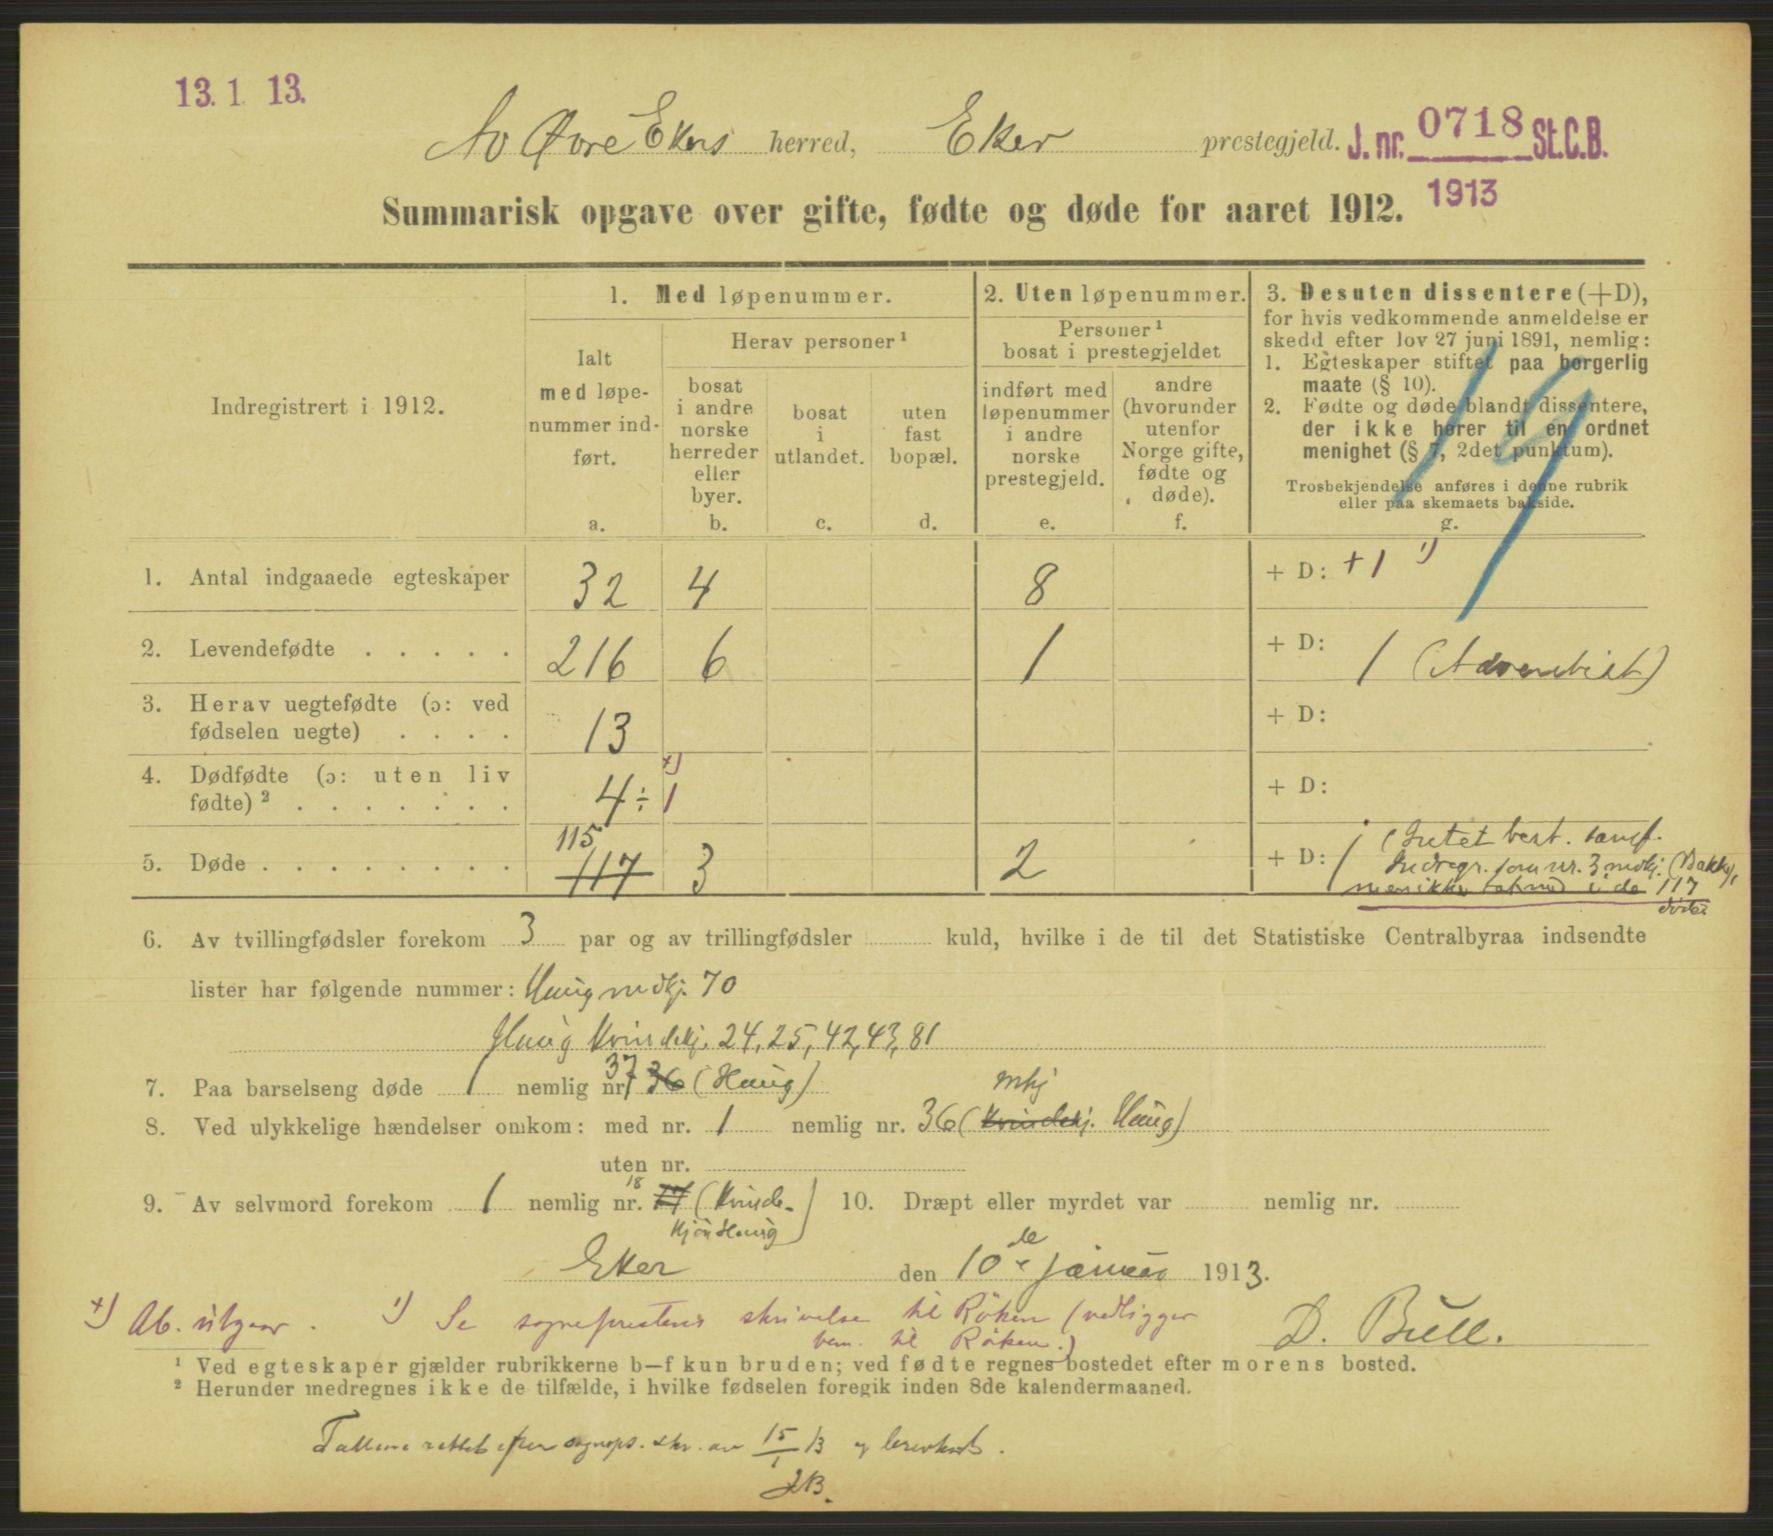 13. 1 13.
Av Øvre Ekers herred, Eker prestegjeld. J. nr. 0718 St.C.B.
1913
Summarisk opgave over gifte, fødte og døde for aaret 1912.
Indregistrert i 1912.
1. Med løpenummer.
Ialt
med løpe-
nummer ind-
ført.
a.
Herav personer ¹
bosat
i andre
norske
herreder
eller
byer.
b.
bosat
i
utlandet.
c.
uten
fast
bopæl.
d.
2. Uten løpenummer.
Personer ¹
bosat i prestegjeldet
indført med
løpenummer
i andre
norske
prestegjeld.
e.
andre
(hvorunder
utenfor
Norge gifte,
fødte og
døde).
f.
3. Desuten dissentere (+D),
for hvis vedkommende anmeldelse er
skedd efter lov 27 juni 1891, nemlig:
1. Egteskaper stiftet paa borgerlig
maate (§ 10).
2. Fødte og døde blandt dissentere,
der ikke hører til en ordnet
menighet (§ 7, 2det punktum).
Trosbekjendelse anføres i denne rubrik
eller paa skemaets bakside.
g.
1. Antal indgaaede egteskaper 32 4 8 + D: +1 ¹)
2. Levendefødte . . . . . 216 6 1 + D: 1 (Adventist)
3. Herav uegtefødte (ɔ: ved
fødselen uegte) . . . . 13 + D:
4. Dødfødte (ɔ: uten liv
fødte) ² . . . . . . . 4 ÷ 1 +) + D:
115
5. Døde . . . . . . . . 117 3 2 + D: 1 (Intet best. samf.
Indregr. som nr. 3 mdkj. (Bakke),
men ikke tat med i de 117
døde
6. Av tvillingfødsler forekom 3 par og av trillingfødsler kuld, hvilke i de til det Statistiske Centralbyraa indsendte
lister har følgende nummer: Haug mdkj. 70
Haug Kvindekj. 24, 25, 42, 43, 81
7. Paa barselseng døde 1 nemlig nr. 37 36 (Haug)
8. Ved ulykkelige hændelser omkom: med nr. 1 nemlig nr. 36 (Kvindekj. mkj Haug)
uten nr.
9. Av selvmord forekom 1 nemlig nr. 18 17 (Kvinde-
kjøn Haug)
10. Dræpt eller myrdet var nemlig nr.
Eker den 10de januar 1913.
+) Ab. utgaar. ¹) Se sogneprestens skrivelse til Röken (vedligger
bem. til Röken.)
D. Bull.
¹ Ved egteskaper gjælder rubrikkerne b—f kun bruden; ved fødte regnes bostedet efter morens bosted.
² Herunder medregnes ikke de tilfælde, i hvilke fødselen foregik inden 8de kalendermaaned.
Tallene rettet efter sognepr. skr. av 15/1 13 og brevkort.